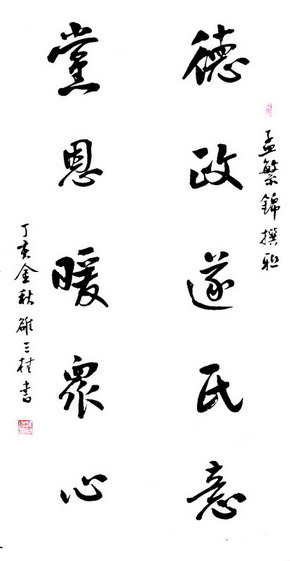 孟繁錦撰聯
德政遂民意
黨恩暖眾心
丁亥金秋雒三桂書